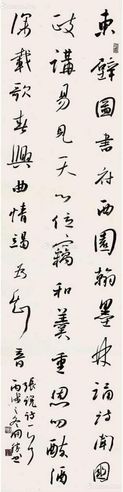 東壁圖書府西園翰墨林誦詩聞國
政講易見天心位竊和羹重恩叨醉酒
深載歌春興曲情竭為知音
張說詩一首
丙戌之冬